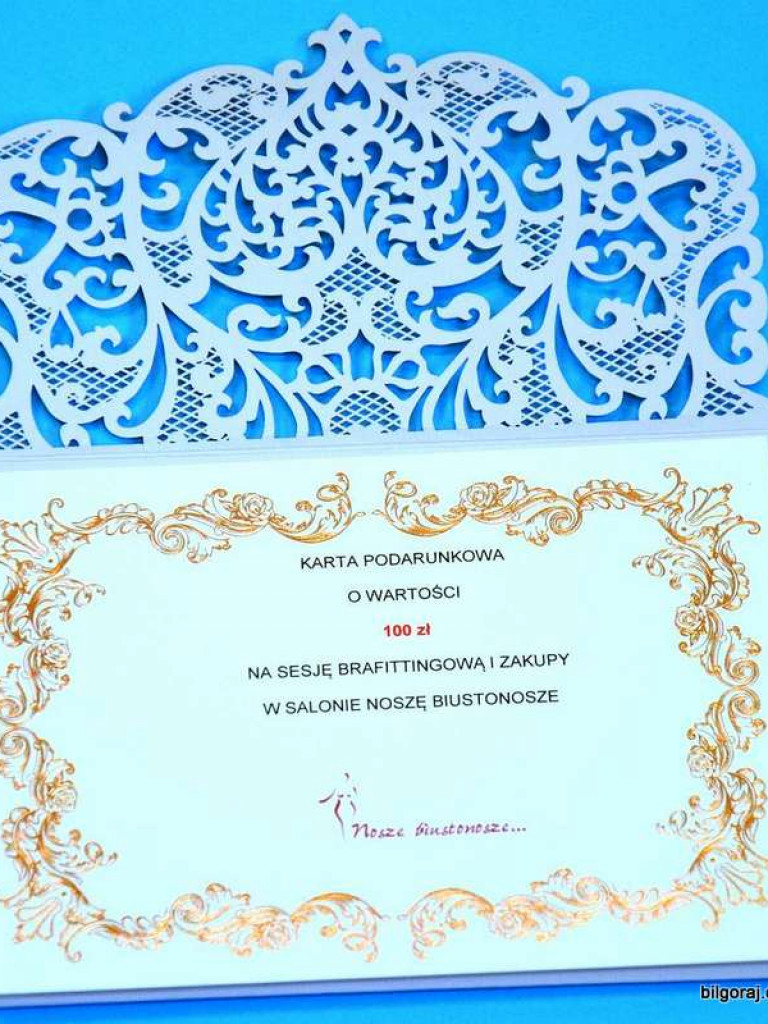 KARTA PODARUNKOWA
O WARTOŚCI
100 zł
NA SESJĘ BRAFITTINGOWĄ I ZAKUPY
W SALONIE NOSZĘ BIUSTONOSZE
Noszę biustonosze...